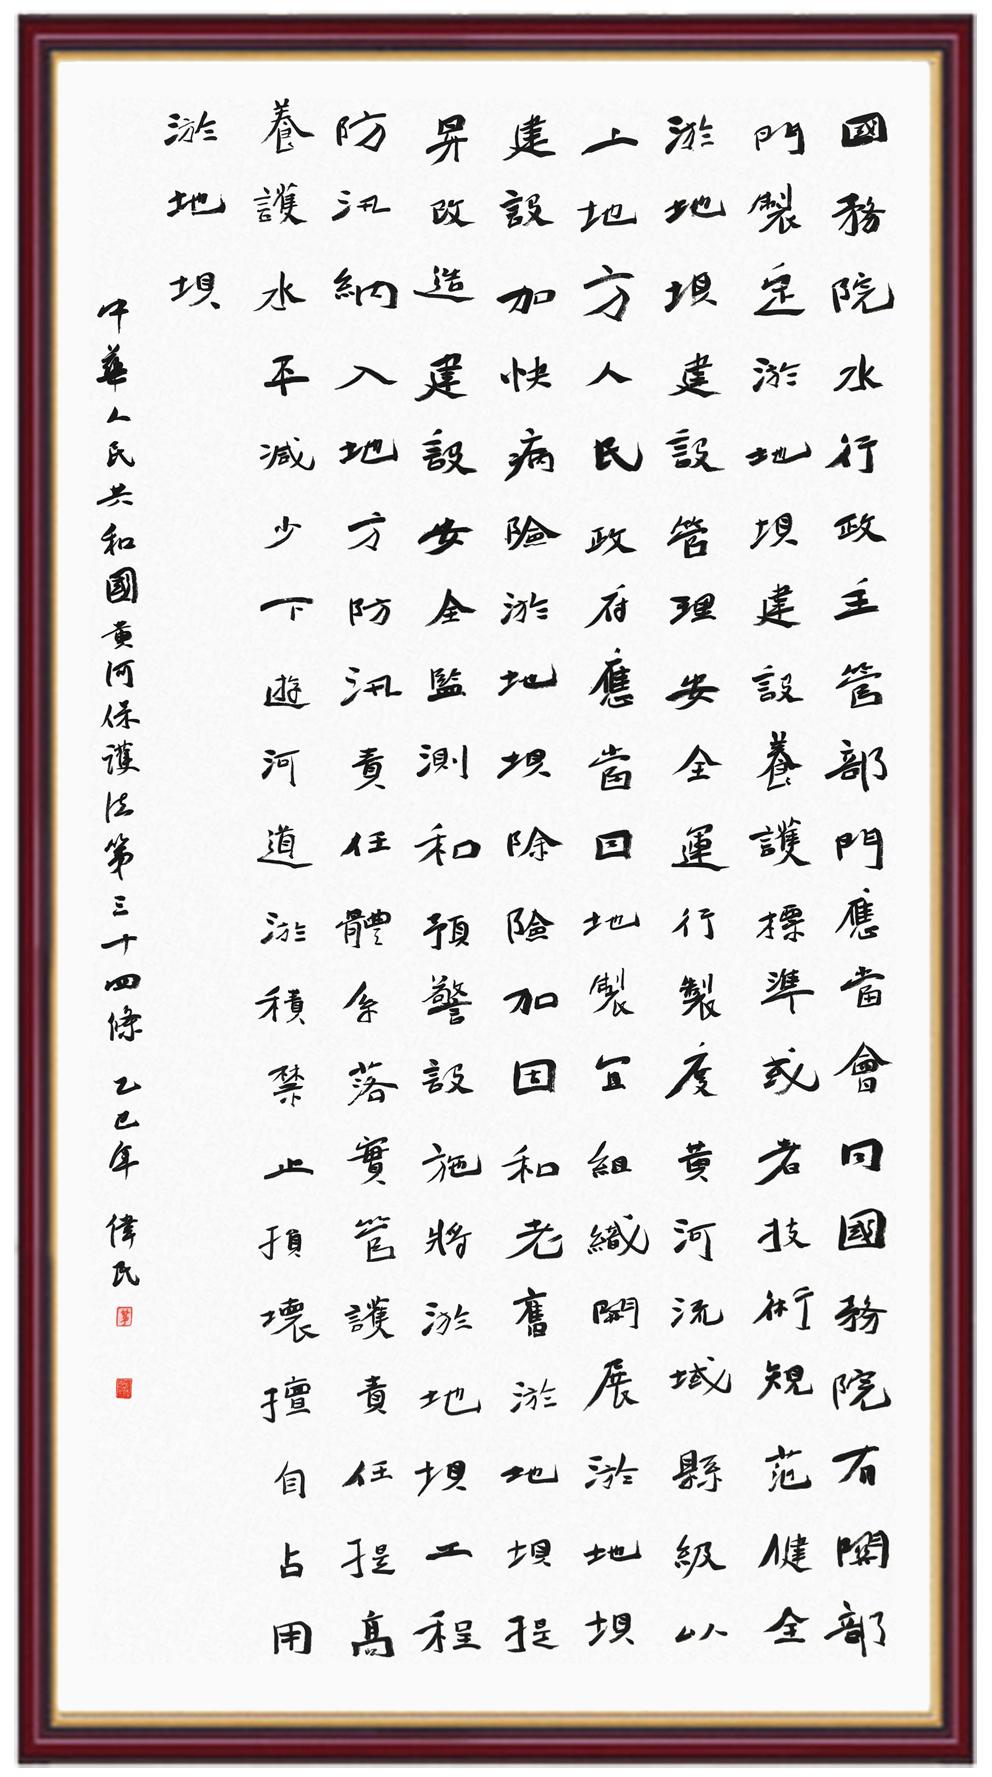 國務院水行政主管部門應當會同國務院有關部
門製定淤地垻建設養護標準或者技術規范健全
淤地垻建設管理安全運行製度黄河流域縣級以
上地方人民政府應當因地製宜組織開展淤地垻
建設加快病險淤地垻除險加固和老舊淤地垻提
昇改造建設安全監測和預警設施將淤地垻工程
防汛納入地方防汛責任體系落實管護責任提高
養護水平減少下遊河道淤積禁止損壞擅自占用
淤地垻
中華人民共和國黄河保護法第三十四條 乙巳年 偉民